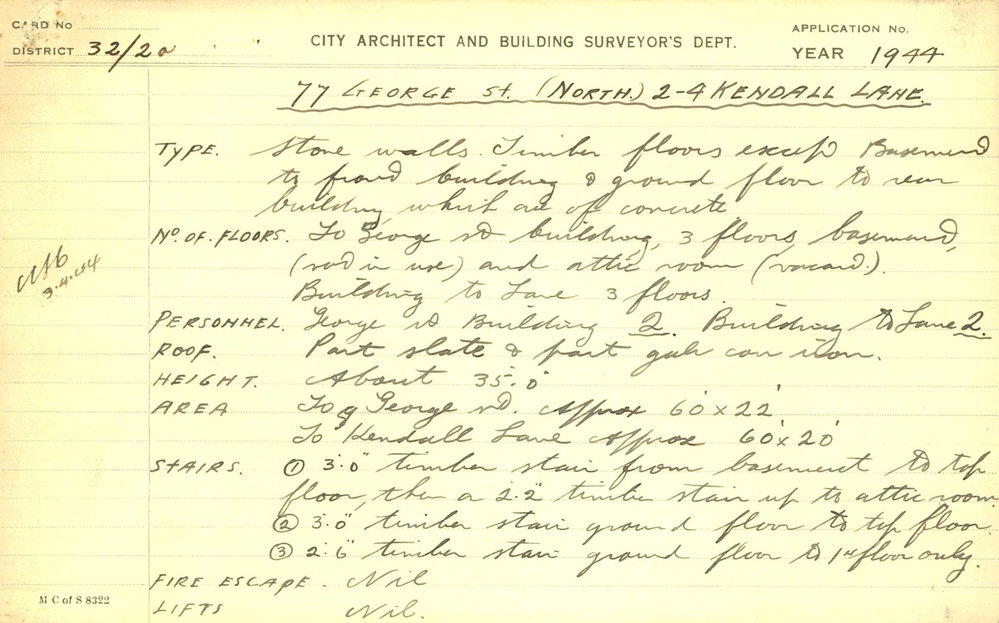 CARD NO
DISTRICT 32/2a
CITY ARCHITECT AND BUILDING SURVEYOR'S DEPT.
APPLICATION No.
YEAR 1944
77 GEORGE St. (NORTH.) 2-4 KENDALL LANE.
TYPE. Stone walls. Timber floors except Basement
to front building & ground floor to rear
building which are of concrete
No. OF FLOORS. To George St building, 3 floors, basement,
(not in use) and attic room (vacant).
Building to Lane 3 floors.
PERSONNEL. George St Building 2. Building to Lane 2.
ROOF. Part slate & part galv corr iron.
HEIGHT. About 35'.0"
AREA To George St. Approx 60' x 22'
To Kendall Lane Approx 60' x 20'
STAIRS. ① 3'.0" timber stair from basement to top
floor, then a 2'.2" timber stair up to attic room
② 3'.0" timber stair ground floor to top floor.
③ 2'.6" timber stair ground floor to 1st floor only.
FIRE ESCAPE. Nil
LIFTS Nil.
3.4.44
M C of S 8322